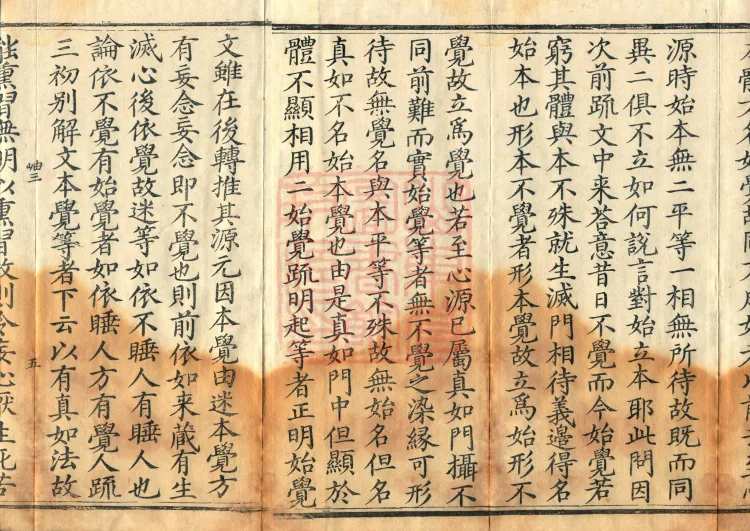 源時始本無二平等一相無所待故既而同
異二俱不立如何說言對始立本耶此問因
次前疏文中来荅意昔日不覺而今始覺若
窮其體與本不殊就生滅門相待義邊得名
始本也形本不覺者形本覺故立爲始形不
覺故立爲覺也若至心源已屬真如門攝不
同前難而實始覺等者無不覺之染緣可形
待故無覺名與本平等不殊故無始名但名
真如不名始本覺也由是真如門中但顯於
體不顯相用二始覺䟽明起等者正明始覺
文雖在後轉推其源元因本覺由迷本覺方
有妄念妄念即不覺也則前依如来蔵有生
滅心後依覺故迷等如依不睡人有睡人也
論依不覺有始覺者如依睡人方有覺人䟽
三初别解文本覺等者下云以有真如法故
能熏習無明以熏習故則令妄心厭生死苦
五